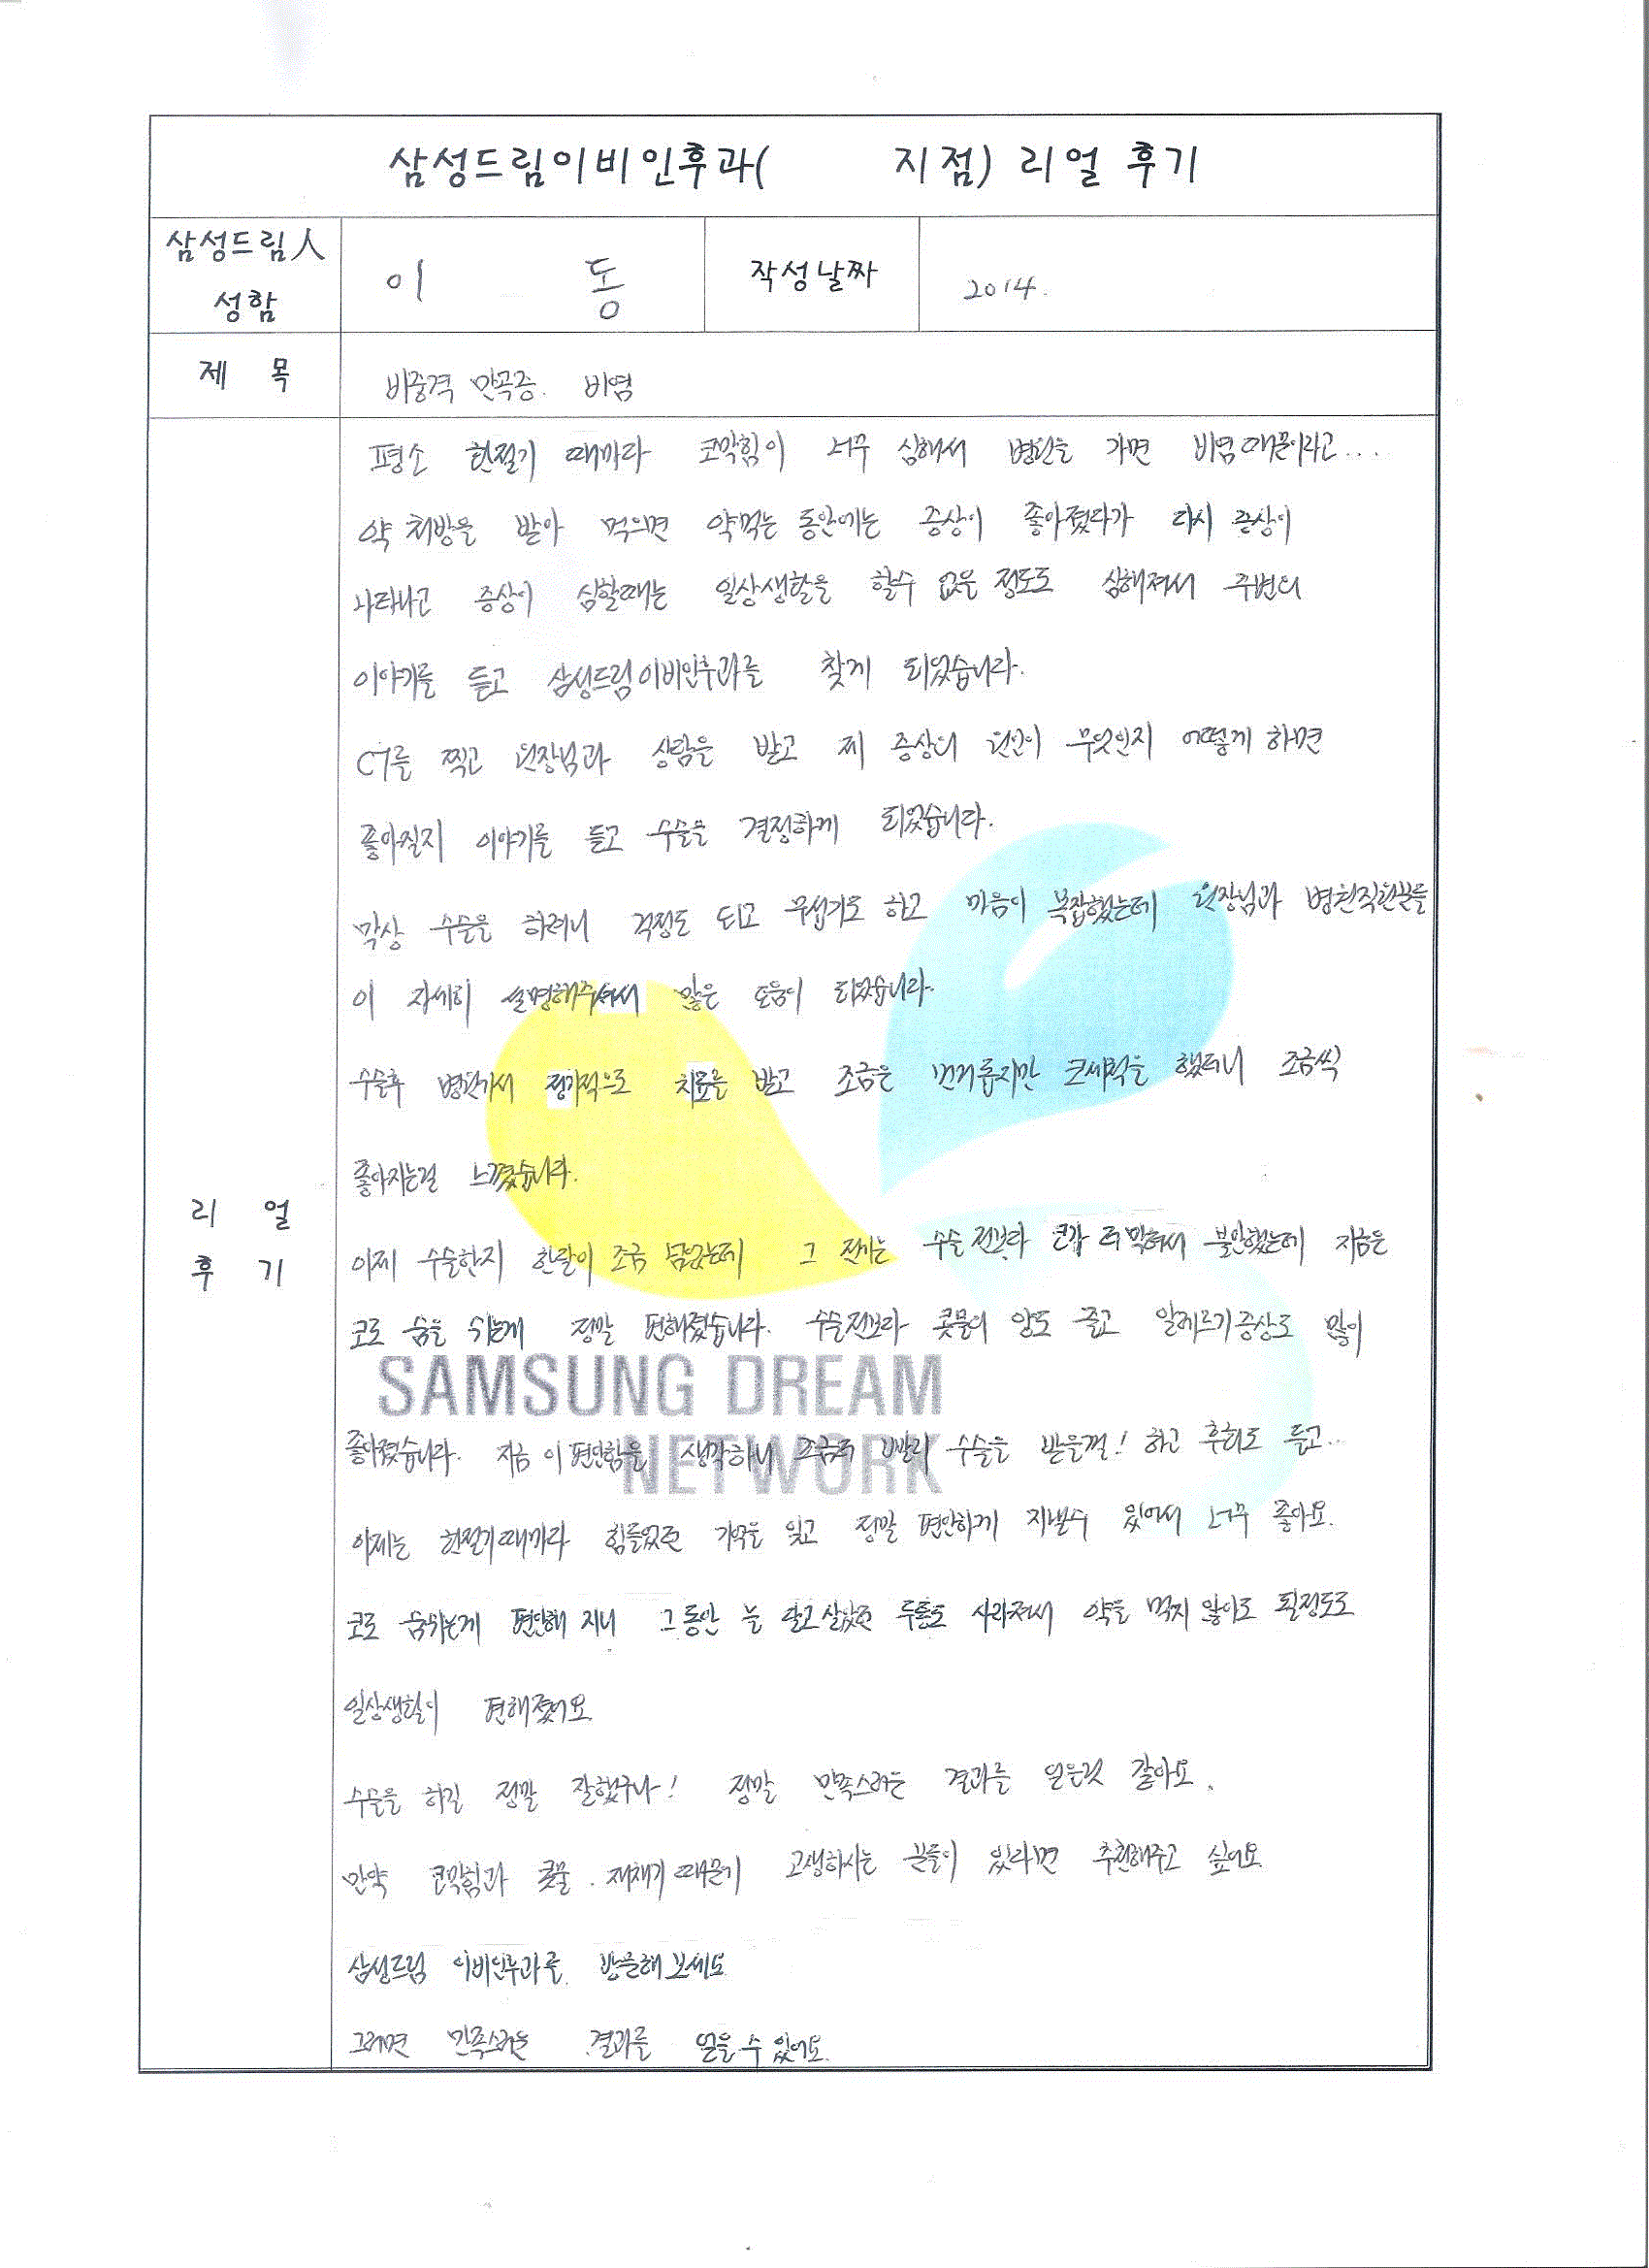 삼성드림이비인후과(          지점) 리얼 후기
삼성드림人
성함
이          동
작성날짜
2014.
제 목
비중격 만곡증. 비염
평소 환절기 때마다 코막힘이 너무 심해서 병원을 가면 비염때문이라고....
약 처방을 받아 먹으면 약먹는 동안에는 증상이 좋아졌다가 다시 증상이
나타나고 증상이 심할때는 일상생활을 할수 없을 정도로 심해져서 주변의
이야기를 듣고 삼성드림이비인후과를 찾게 되었습니다.
CT를 찍고 원장님과 상담을 받고 제 증상의 원인이 무엇인지 어떻게 하면
좋아질지 이야기를 듣고 수술을 결정하게 되었습니다.
막상 수술을 하려니 걱정도 되고 무섭기도 하고 마음이 복잡했는데 원장님과 병원직원분들
이 자세히 설명해주셔서 많은 도움이 되었습니다.
수술후 병원가서 정기적으로 치료를 받고 조금은 번거롭지만 코세척을 했더니 조금씩
좋아지는걸 느꼈습니다.
리 얼
후 기
이제 수술한지 한달이 조금 넘었는데 그 전에는 수술 전보다 코가 더 막혀서 불안했는데 지금은
코로 숨을 쉬는게 정말 편해졌습니다. 수술전보다 콧물의 양도 줄고 알레르기증상도 많이
SAMSUNG DREAM
NETWORK
좋아졌습니다. 지금 이 편안함을 생각하니 조금더 빨리 수술을 받을껄! 하고 후회도 들고..
이제는 환절기때마다 힘들었던 기억을 잊고 정말 편안하게 지낼수 있어서 너무 좋아요.
코로 숨쉬는게 편안해 지니 그동안 늘 달고 살았던 두통도 사라져서 약을 먹지 않아도 될정도로
일상생활이 편해졌어요
수술을 하길 정말 잘했구나! 정말 만족스러운 결과를 얻은것 같아요.
만약 코막힘과 콧물. 재채기 때문에 고생하시는 분들이 있다면 추천해주고 싶어요
삼성드림 이비인후과를 방문해 보세요
그러면 만족스러운 결과를 얻을 수 있어요.